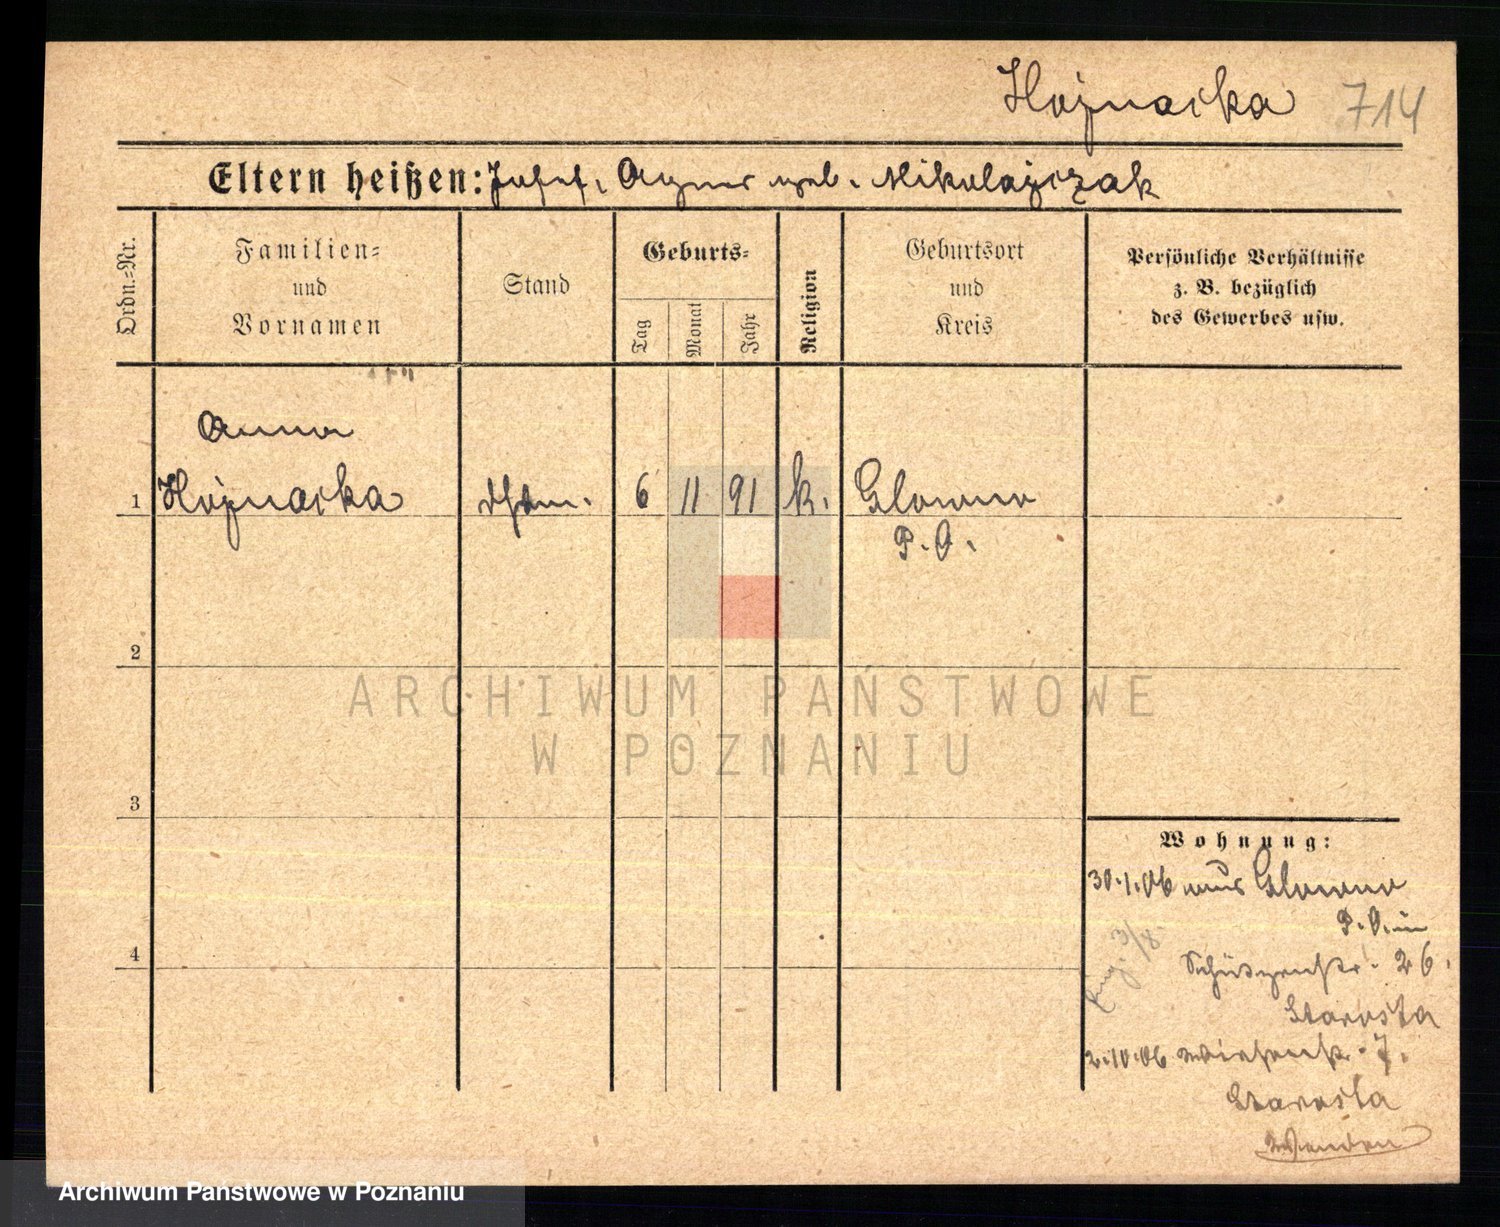 Hojnacka 714
Eltern heißen: Josef, Agnes geb. Mikolajczak
Ordn.-Nr.
Familien- und Vornamen
Stand
Geburts-
Tag
Monat
Jahr
Religion
Geburtsort und Kreis
Persönliche Verhältnisse
z. B. bezüglich
des Gewerbes usw.
Anna
1 Hojnacka 6 11 91 k. Glowno
P. O.
2
3
4
Wohnung:
30.1.06 aus Glowno
P. O. in
Schützenstr. 26.
Starosta
2.10.06 Wiesenstr. 7.
Starosta
Wenden
ARCHIWUM PAŃSTWOWE
W POZNANIU
Archiwum Państwowe w Poznaniu